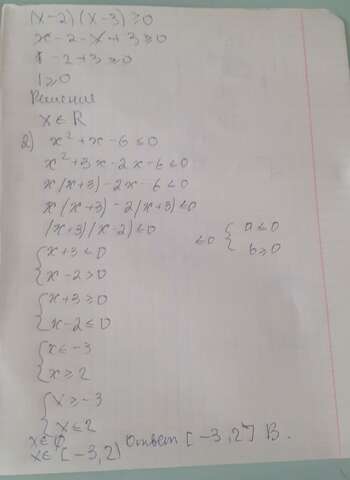 (x-2)(x-3)≥0
x-2-x+3≥0
-2+3≥0
1≥0
Решение
x∈R
2) x²+x-6≤0
x²+3x-2x-6≤0
x(x+3)-2x-6≤0
x(x+3)-2(x+3)≤0
(x+3)(x-2)≤0 ≤0 { a≤0
b≥0
{ x+3≤0
x-2≥0
{ x+3≥0
x-2≤0
{ x≤-3
x≥2
{ x≥-3
x≤2
x∈∅
x∈[-3,2) Ответ [-3,2] B.